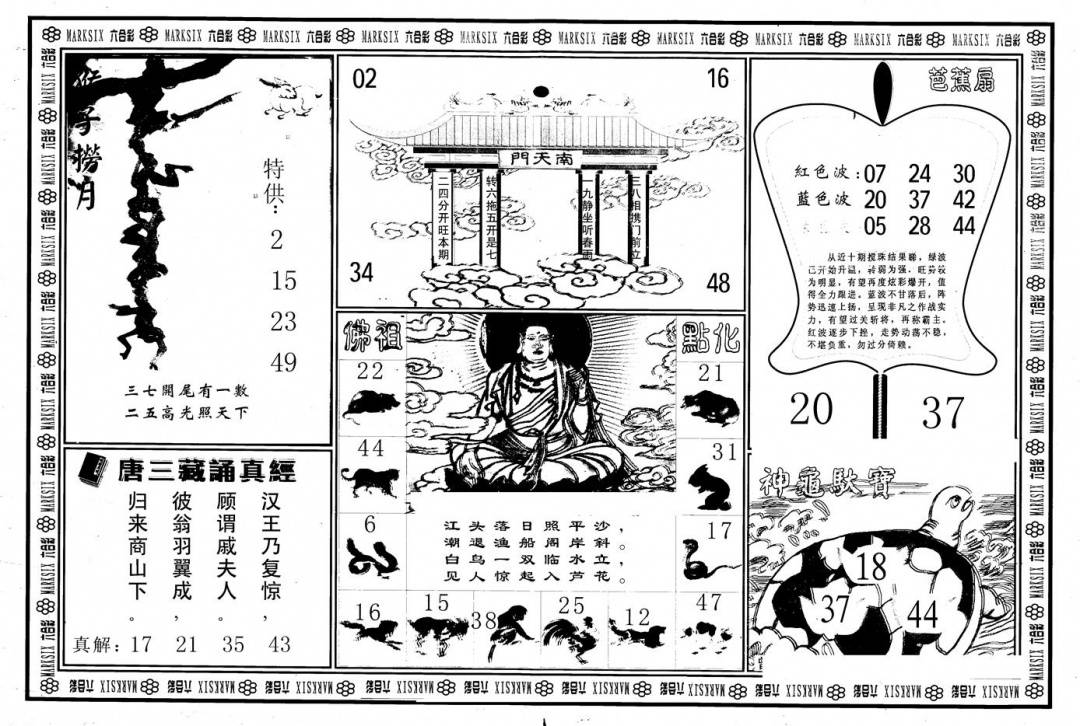 MARKSIX 六合彩 MARKSIX 六合彩 MARKSIX 六合彩 MARKSIX 六合彩 MARKSIX 六合彩 MARKSIX 六合彩 MARKSIX 六合彩 MARKSIX 六合彩 MARKSIX 六合彩 MARKSIX 六合彩
猴子撈月
特供：
2
15
23
49
三七開尾有一數
二五高光照天下
02
16
南天門
二四分开旺本期
转六拖五开是七
一九静坐听春雨
三八相携门前立
34
48
芭蕉扇
紅色波：07 24 30
藍色波 20 37 42
05 28 44
从近十期搅珠结果睇，绿波
已开始升温，转弱为强，旺势较
为明显，有望再度炫彩爆开，值
得全力跟进。蓝波不甘落后，阵
势迅速上扬，呈现非凡之作战实
力，有望过关斩将，再称霸主。
红波逐步下挫，走势动荡不稳，
不堪负重，勿过分倚赖。
20
37
佛祖
點化
22
21
44
31
6
17
江头落日照平沙，
潮退渔船阁岸斜。
白鸟一双临水立，
见人惊起入芦花。
16
15
38
25
12
47
唐三藏誦真經
汉王乃复惊，
顾谓戚夫人。
彼翁羽翼成，
归来商山下。
真解：17 21 35 43
神龜馱寶
18
37
44